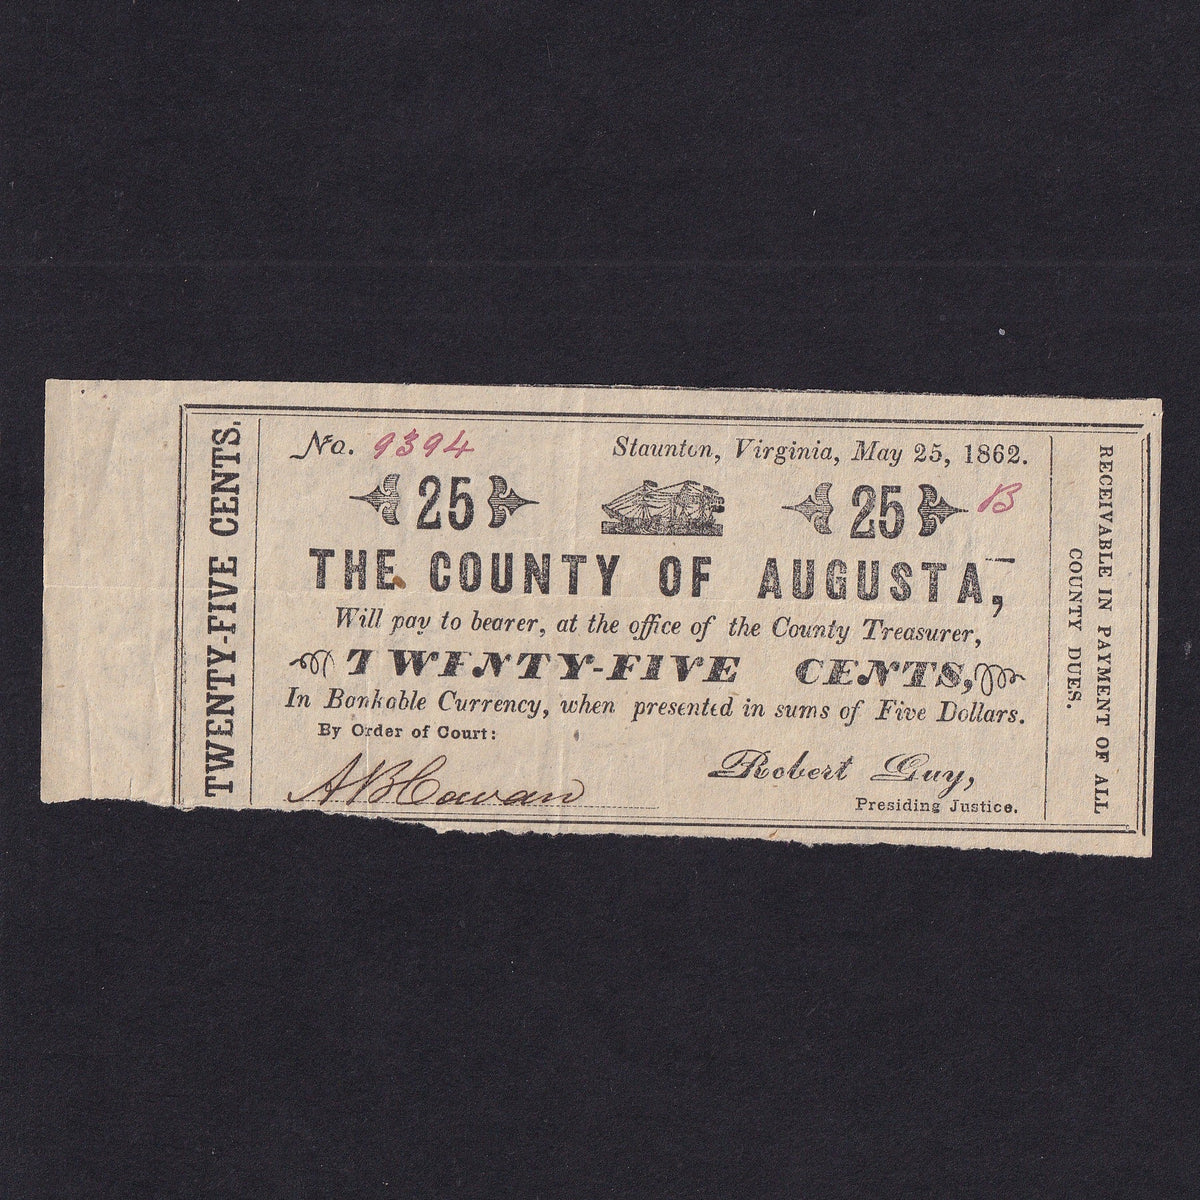 TWENTY-FIVE CENTS.
No. 9394
Staunton, Virginia, May 25, 1862.
25
25
B
THE COUNTY OF AUGUSTA,
Will pay to bearer, at the office of the County Treasurer,
TWENTY-FIVE CENTS,
In Bankable Currency, when presented in sums of Five Dollars.
By Order of Court:
A B Cowan
Robert Guy,
Presiding Justice.
RECEIVABLE IN PAYMENT OF ALL
COUNTY DUES.